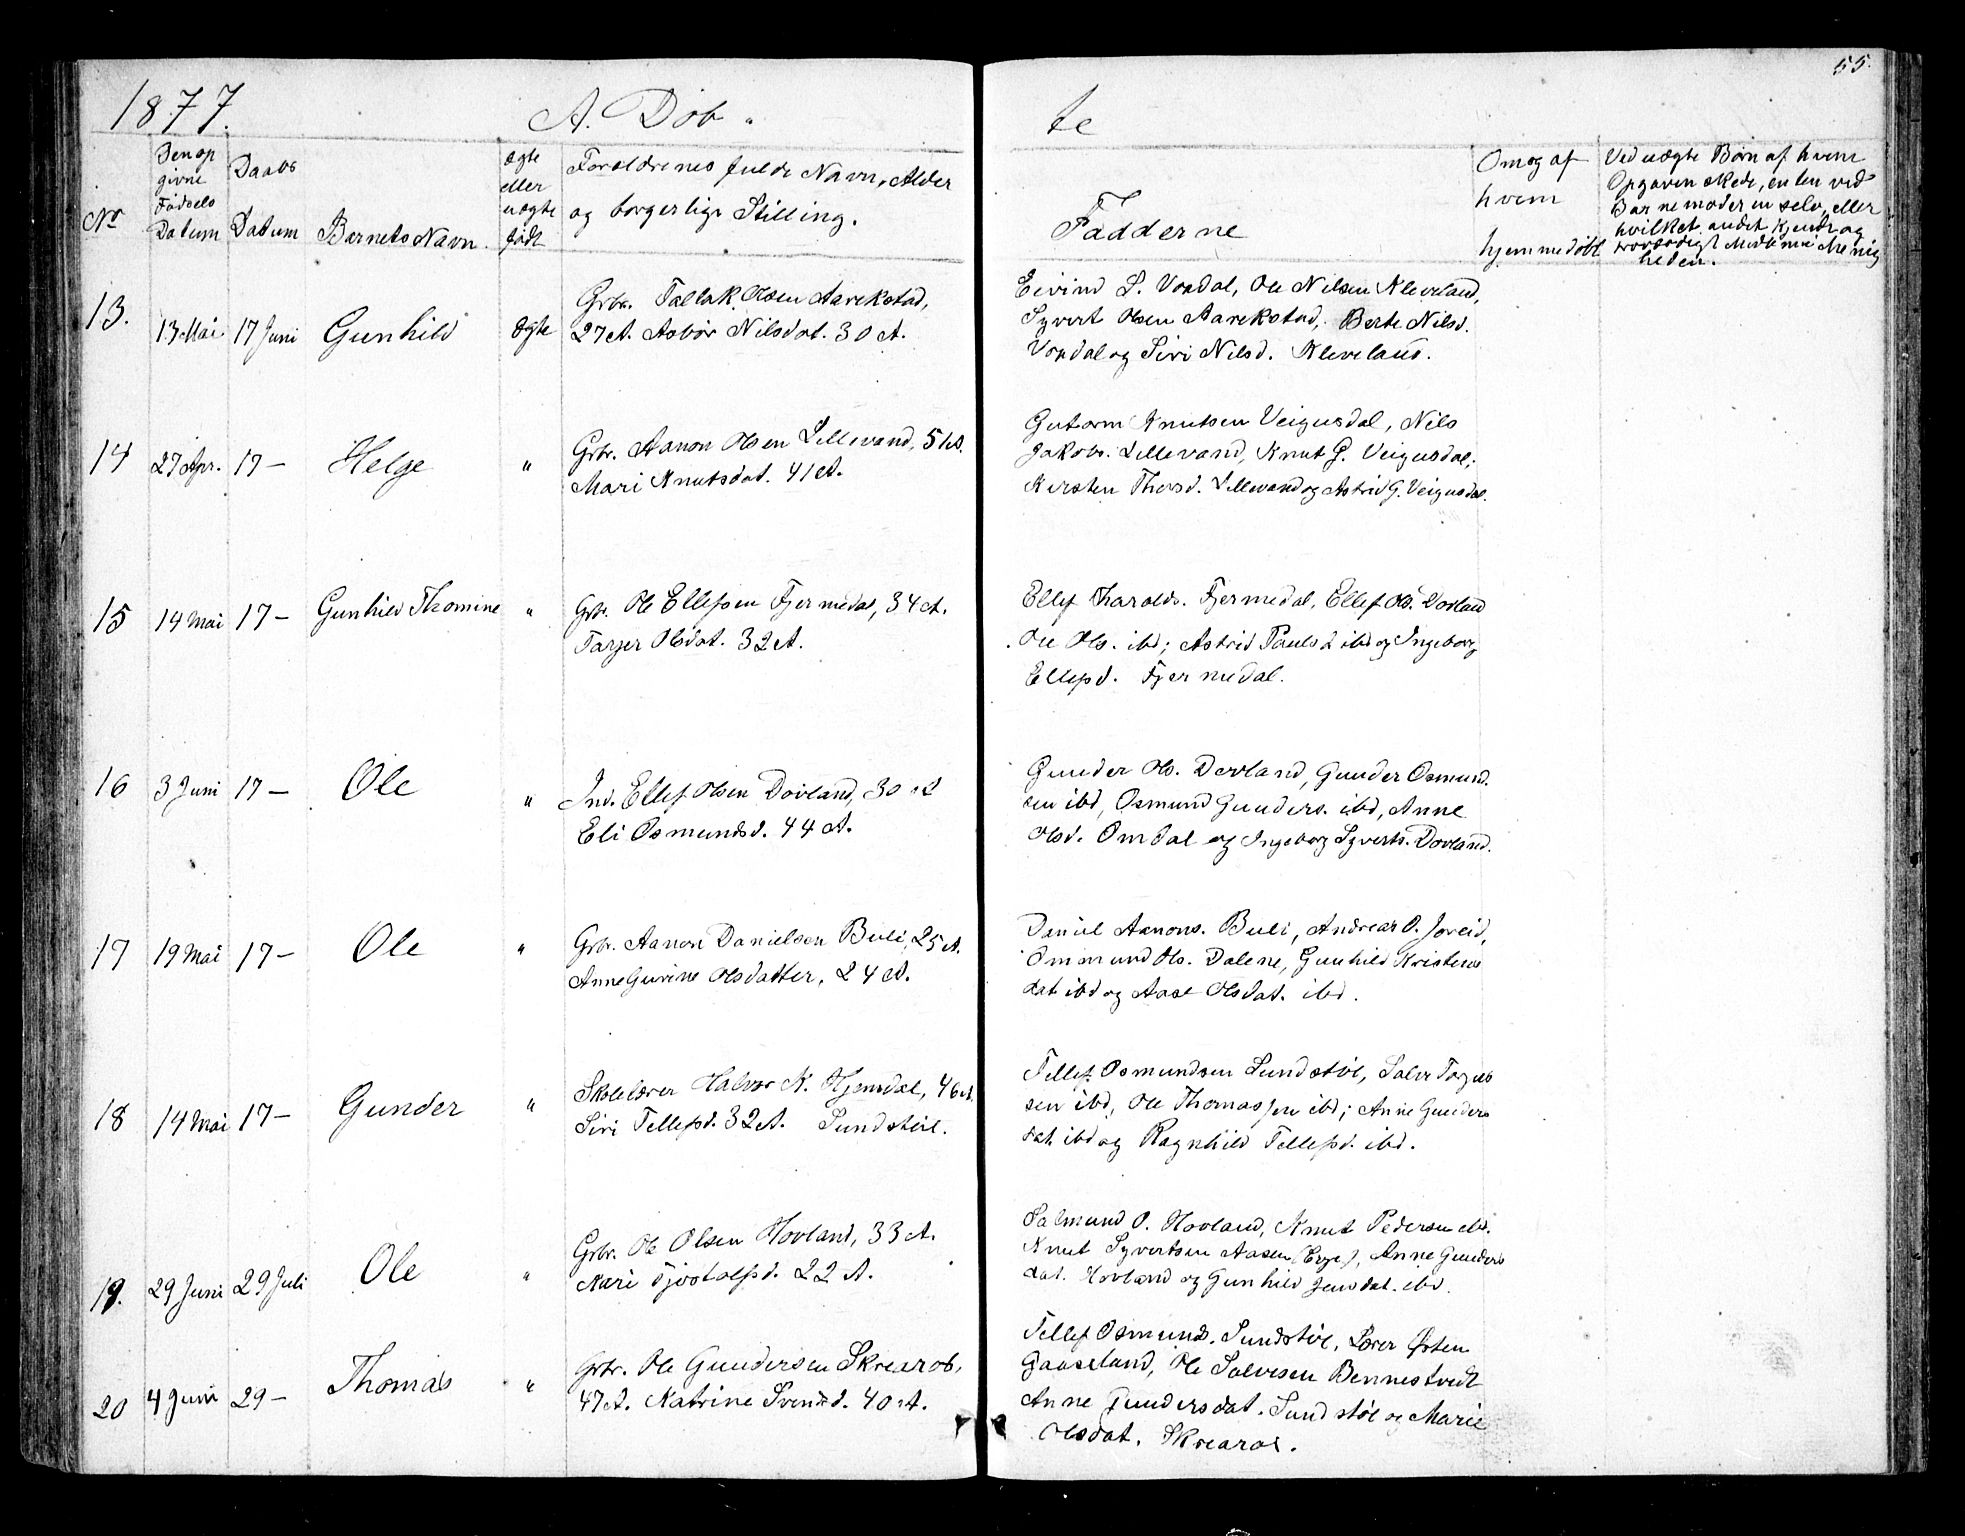 55.
1877.
A. Døb-
te
No
Den op
givne
Fødsels
Datum
Daabs
Datum
Barnets Navn.
Ægte
eller
uægte
født
Forældrenes fulde Navn, Alder
og borgerlige Stilling.
Fadderne
Om og af
hvem
hjemmedøbt
Ved uægte Børn af hvem
Opgaven skede, enten ved
Barnemoderen selv, eller
hvilket andet kjendt og
troværdigt Medlem i Menig
heden.
13.
13 Mai
17 Juni
Gunhild
Ægte
Grbr. Tallak Olsen Aarekstad,
27 A. Asbør Nilsdat. 30 A.
Eivind S. Vordal, Ole Nilsen Kleveland,
Syvert Olsen Aarekstad, Berte Nilsd.
Vordal og Siri Nilsd. Kleveland.
14
27 Apr.
17 —
Helge
"
Grbr. Aanon Olsen Lillevand, 51 A.
Mari Knutsdat. 41 A.
Gutorm Knutsen Veigusdal, Nils
Jakobs. Lillevand, Knut G. Veigusdal,
Kersten Thorsd. Lillevand og Astrid G. Veigusdal.
15
14 Mai
17 —
Gunhild Thomine
"
Grbr. Ole Ellefsen Fjermedal, 34 A.
Tarjer Olsdat. 32 A.
Ellef Tharalds. Fjermedal, Ellef Ols. Dovland
Ole Ols. ibd; Astrid Paulsd ibd og Ingeborg
Ellefsd. Fjermedal.
16
3 Juni
17 —
Ole
"
Ind. Ellef Olsen Dovland, 30 A
Eli Osmundsd. 44 A.
Gunder Ols. Dovland, Gunder Osmund.
sen ibd, Osmund Gunders. ibd, Anne
Olsd. Omdal og Ingeborg Syverts. Dovland.
17
19 Mai
17 —
Ole
"
Grbr. Aanon Danielsen Buli, 25 A.
Anne Gurine Olsdatter, 24 A.
Daniel Aanons. Buli, Andreas O. Joreid,
Ommund Ols. Dalene, Gunhild Kristens
dat ibd og Aase Olsdat. ibd.
18
14 Mai
17 —
Gunder
"
Skolelærer Halvor K. Hjemdal, 46 A.
Siri Tellefsd. 32 A. Sundstøl.
Tellef Osmundsen Sundstøl, Salve Torjus
sen ibd, Ole Thomassen ibd; Anne Gunders
dat. ibd og Ragnhild Tellefsd. ibd.
19.
29 Juni
29 Juli
Ole
"
Grbr. Ole Olsen Hovland, 33 A.
Kari Tjostolfsd. 22 A.
Salmund O. Hovland, Knut Pedersen ibd.
Knut Syvertsen Aasen, Anne Gunders
dat. Hovland og Gunhild Jensdat. ibd.
20
4 Juni
29 —
Thomas
"
Grbr. Ole Gundersen Skrearos,
47 A. Katrine Svensd. 40 A.
Tellef Osmunds. Sundstøl, Lærer Østen
Gaaseland, Ole Salvesen Bennestvedt
Anne Gundersdat. Sundstøl og Marie
Olsdat. Skrearos.